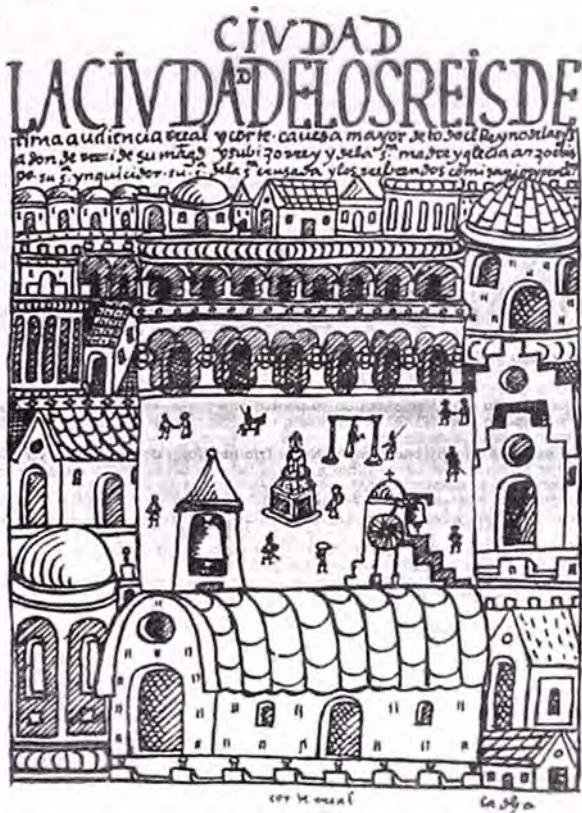 CIVDAD
LA CIVDAD DE LOS REIS DE
lima audiencia rreal y corte. cauesa mayor de todo el Reyno de las ys
a donde reci de su magd y subizorrey y dela sa madre yglecia arzobis
po su sa ynquicidor. su sa dela sa crusada y los rreberendos comisarios y
corte rreal